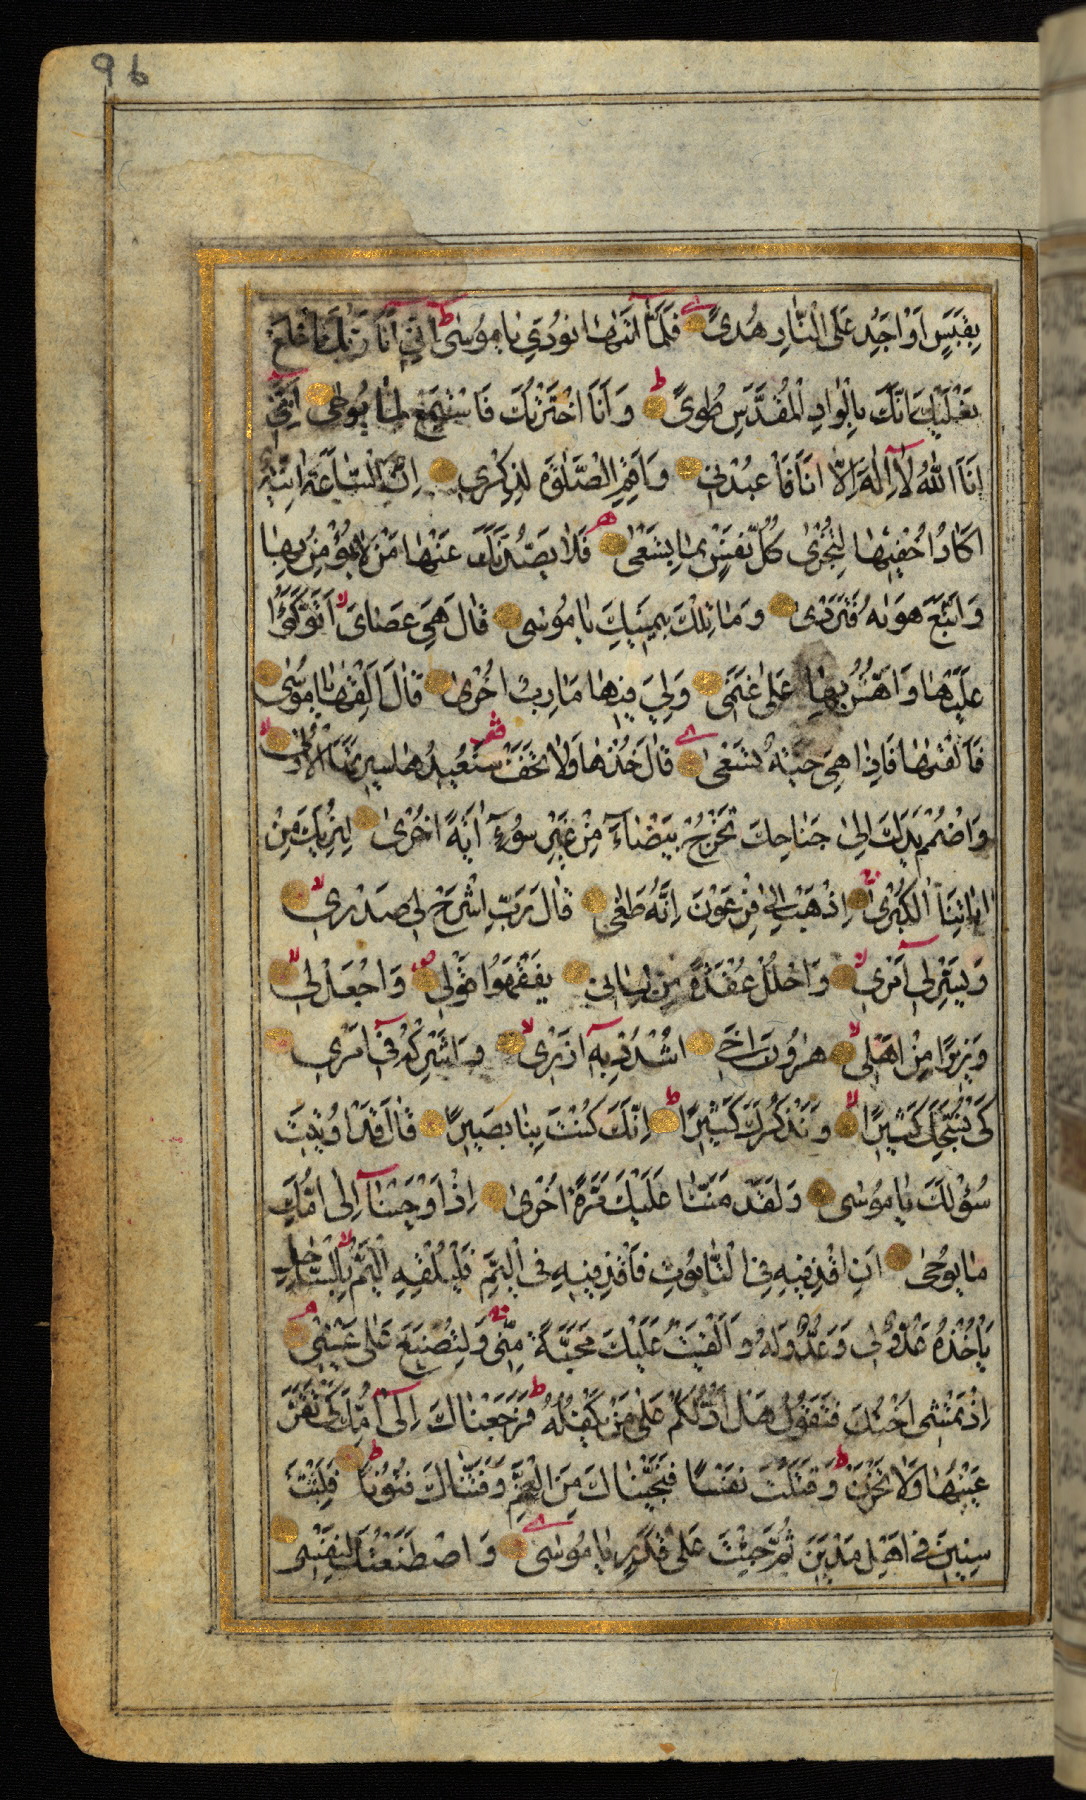 96
بِقَبَسٍ اَوْ اَجِدُ عَلَى النَّارِ هُدىً فَلَمَّٓا اَتٰیهٰا نُودِيَ يٰا مُوسٰى اِنّٖٓي اَنَا رَبُّكَ فَاخْلَعْ
نَعْلَيْكَ اِنَّكَ بِالْوٰادِ الْمُقَدَّسِ طُوىً وَ اَنَا اخْتَرْتُكَ فَاسْتَمِعْ لِمٰا يُوحٰى اِنَّنٖٓي
اَنَا اللّٰهُ لٰٓا اِلٰهَ اِلّٰٓا اَنَا فَاعْبُدْنٖي وَ اَقِمِ الصَّلٰوةَ لِذِكْرٖي اِنَّ السّٰاعَةَ اٰتِيَةٌ
اَكٰادُ اُخْفٖيهٰا لِتُجْزٰى كُلُّ نَفْسٍ بِمٰا تَسْعٰى فَلٰا يَصُدَّنَّكَ عَنْهٰا مَنْ لٰا يُؤْمِنُ بِهٰا
وَ اتَّبَعَ هَوٰيهُ فَتَرْدٰى وَ مٰا تِلْكَ بِيَمٖينِكَ يٰا مُوسٰى قٰالَ هِيَ عَصٰايَ اَتَوَكَّؤُا
عَلَيْهٰا وَ اَهُشُّ بِهٰا عَلٰى غَنَمٖي وَلِيَ فٖيهٰا مَاٰرِبُ اُخْرٰى قٰالَ اَلْقِهٰا يٰا مُوسٰى
فَاَلْقٰيهٰا فَاِذٰا هِيَ حَيَّةٌ تَسْعٰى قٰالَ خُذْهٰا وَلٰا تَخَفْ سَنُعٖيدُهٰا سٖيرَتَهَا الْاُولٰى
وَاضْمُمْ يَدَكَ اِلٰى جَنٰاحِكَ تَخْرُجْ بَيْضٰٓاءَ مِنْ غَيْرِ سُوٓءٍ اٰيَةً اُخْرٰى لِنُرِيَكَ مِنْ
اٰيٰاتِنَا الْكُبْرٰى اِذْهَبْ اِلٰى فِرْعَوْنَ اِنَّهُ طَغٰى قٰالَ رَبِّ اشْرَحْ لٖي صَدْرٖي
وَ يَسِّرْ لٖٓي اَمْرٖي وَ احْلُلْ عُقْدَةً مِنْ لِسٰانٖي يَفْقَهُوا قَوْلٖي وَ اجْعَلْ لٖي
وَزٖيرًا مِنْ اَهْلٖي هٰرُونَ اَخٖي اُشْدُدْ بِهٖٓ اَزْرٖي وَ اَشْرِكْهُ فٖٓي اَمْرٖي
كَيْ نُسَبِّحَكَ كَثٖيرًا وَ نَذْكُرَكَ كَثٖيرًا اِنَّكَ كُنْتَ بِنٰا بَصٖيرًا قٰالَ قَدْ اُوتٖيتَ
سُؤْلَكَ يٰا مُوسٰى وَ لَقَدْ مَنَنّٰا عَلَيْكَ مَرَّةً اُخْرٰى اِذْ اَوْحَيْنٰٓا اِلٰى اُمِّكَ
مٰا يُوحٰى اَنِ اقْذِفٖيهِ فِي التّٰابُوتِ فَاقْذِفٖيهِ فِي الْيَمِّ فَلْيُلْقِهِ الْيَمُّ بِالسّٰاحِلِ
يَأْخُذْهُ عَدُوٌّ لٖي وَ عَدُوٌّ لَهُ وَ اَلْقَيْتُ عَلَيْكَ مَحَبَّةً مِنّٖي وَ لِتُصْنَعَ عَلٰى عَيْنٖي
اِذْ تَمْشٖي اُخْتُكَ فَتَقُولُ هَلْ اَدُلُّكُمْ عَلٰى مَنْ يَكْفُلُهُ فَرَجَعْنٰاكَ اِلٰٓى اُمِّكَ كَيْ تَقَرَّ
عَيْنُهٰا وَلٰا تَحْزَنَ وَ قَتَلْتَ نَفْسًا فَنَجَّيْنٰاكَ مِنَ الْغَمِّ وَ فَتَنّٰاكَ فُتُونًا فَلَبِثْتَ
سِنٖينَ فٖٓي اَهْلِ مَدْيَنَ ثُمَّ جِئْتَ عَلٰى قَدَرٍ يٰا مُوسٰى وَ اصْطَنَعْتُكَ لِنَفْسٖي